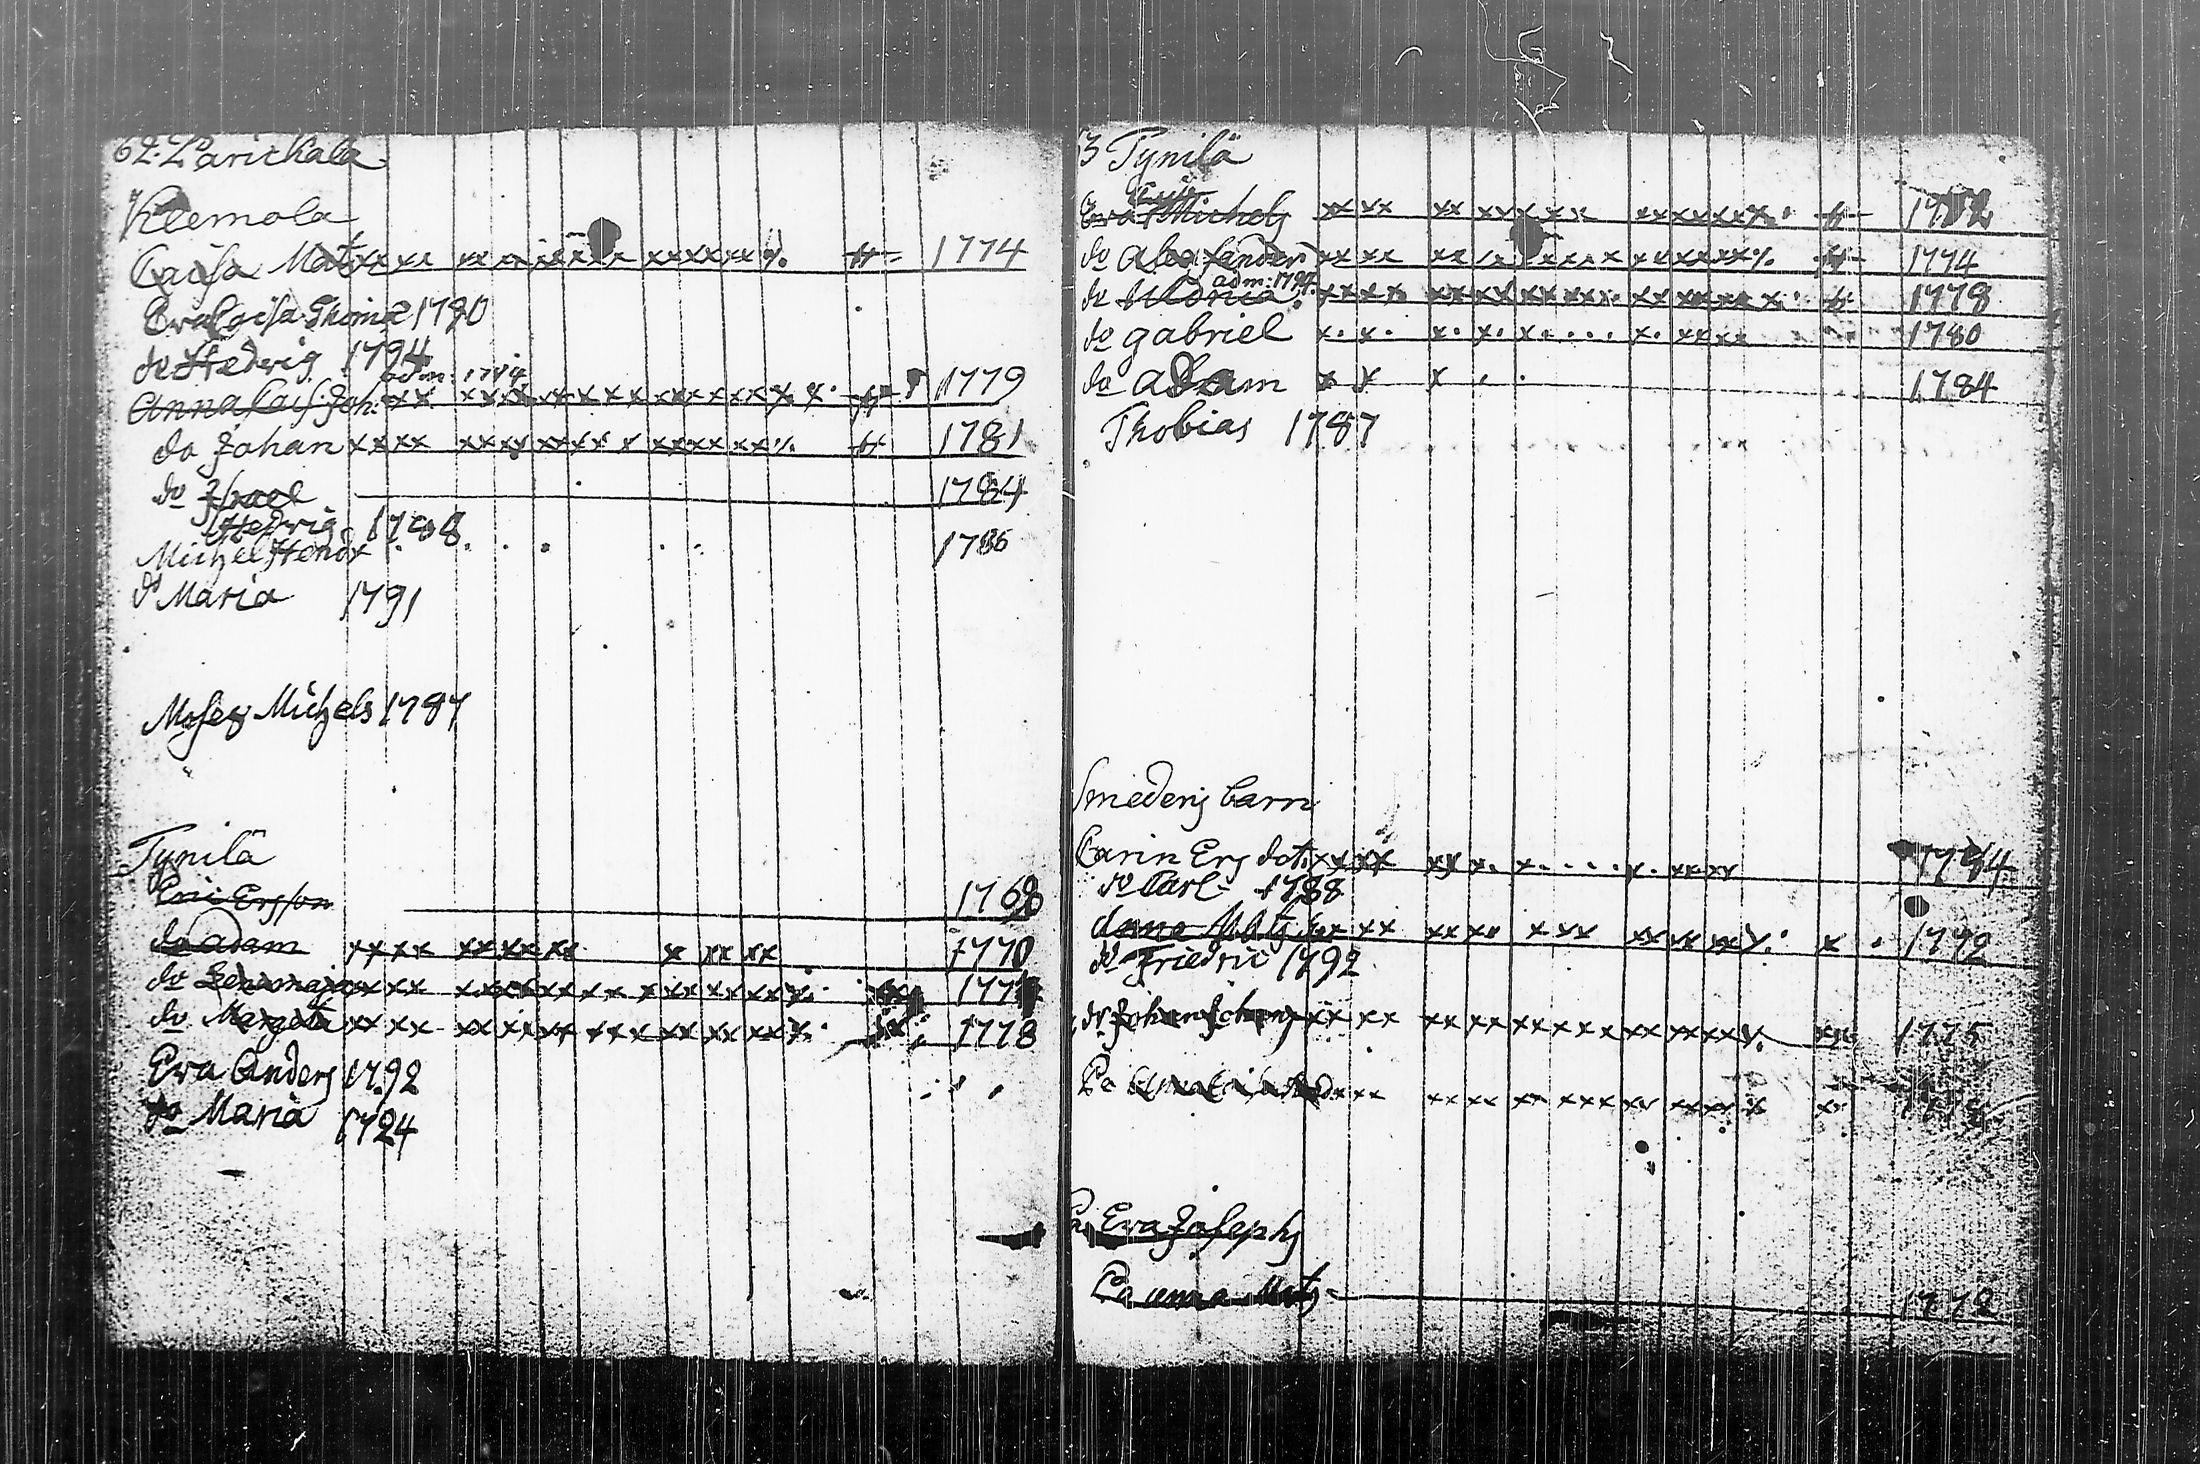 62. Parickala
Keemola
Caisa Mats xxxx xx xx xxxxxx 1774
Eva Caisa Thomæ 1790
do Hedvig 1794
adm: 1794
Anna Cais. Joh: xx xxxx xxxxxxx xxxxxxx 1779
do Johan xxxx xxxx xxxx x xxxx xx 1781
do Israel 1784
Hedvig 1788
Michel Hendr 1786
do Maria 1791
Moses Michels 1787
Tynilä
Eric Ersson 1768
do Adam xxxx xxxxxx x xx xx 1770
do
do Margeta xxxx xxxxxx xxx xx xx xxx 1778
Eva Anders 1792
do Maria 1794
3 Tynilä
Eva Michels xxxx xx xxxxxx xxxxxxx
do Alexander xxxx xx xxxx xxxxxxx 1774
adm: 1794
do xxxx xxxx xxxxx xx xxxxx 1778
do gabriel x. x. x. x. x. . . . . x. xxxx 1780
do adam x x x . . 1784
Thobias 1787
Smedens barn
Carin Ers dot: xxxx xxx. x. . . . . x. xxxx
do Carl 1788
Anna Mats xx xx xxxx xxx xxxxxx x 1772
do Friedric 1792
do Johan Johans xx xx xxxx xxxxxx xx xxxxx xx 1775
Eva Josephs
Po anna Mats 1772